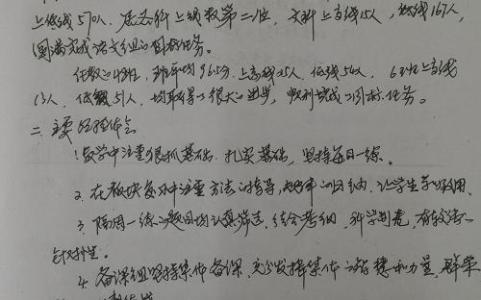 上线570人、居各科上线数第二位，文科上高线15人，低线167人，
圆满完成语文组的目标任务。
任教的48班，班平均96.5分，上高线25人，低线54人，62班上高线
13人，低线51人，均取得了很大的进步，顺利完成了目标任务。
二、主要经验体会
1. 教学中注重狠抓基础，扎实基础，坚持每日一练。
2. 在板块复习中注重方法的指导，归纳，让学生学以致用。
3. 隔周一练的题目均认真筛选，结合考纲，科学判卷，有较强的
针对性。
4. 备课组坚持集体备课，充分发挥集体的智慧和力量，群策